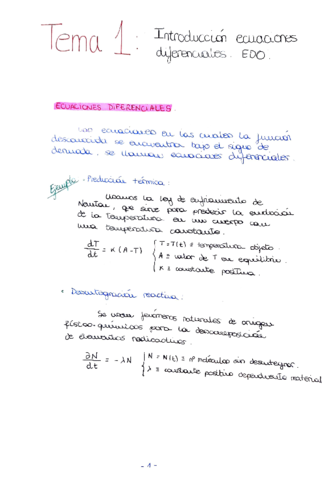 Tema 1: Introducción ecuaciones
diferenciales. EDO.
ECUACIONES DIFERENCIALES
Las ecuaciones en las cuales la función
desconocida se encuentra bajo el signo de
derivada, se llaman ecuaciones diferenciales.
Ejemplo · Predicción térmica:
Usamos la ley de enfriamiento de
Newton, que sirve para predecir la evolución
de la temperatura en un cuerpo con
una temperatura constante.
dT/dt = k (A-T) { T = T(t) ≡ temperatura objeto.
A ≡ valor de T en equilibrio.
K ≡ constante positiva.
• Desintegración reactiva:
Se usan fenómenos naturales de origen
físico-químicos para la descomposición
de elementos radioactivos.
∂N/dt = -λN { N = N(t) ≡ nº moléculas sin desintegrar.
λ ≡ constante positiva dependiente material
-1-